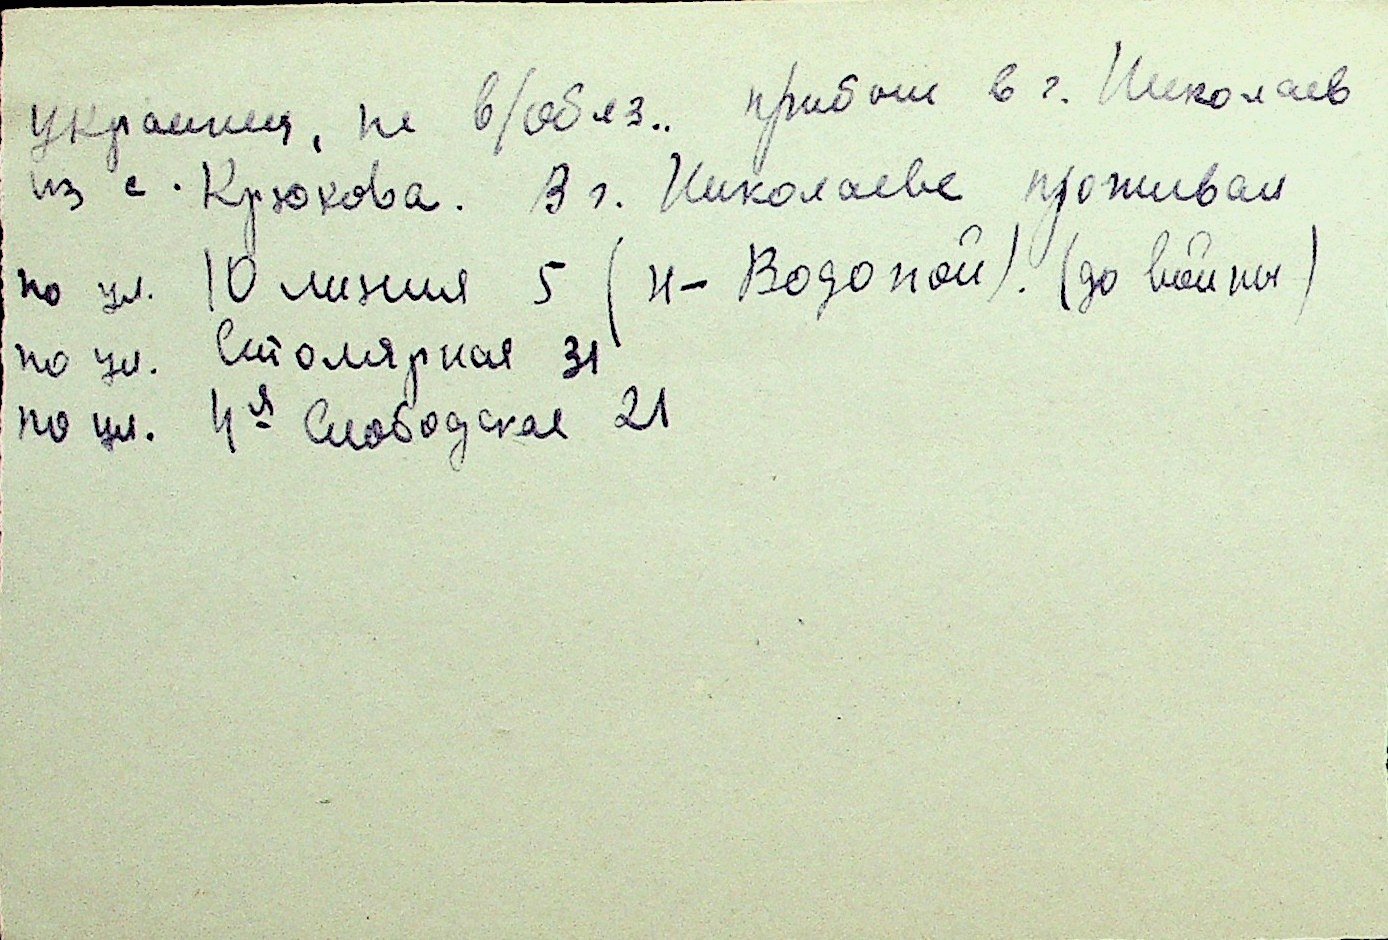 украинец, не в/обяз.. прибыл в г. Николаев
из с. Крюкова. В г. Николаеве проживал
по ул. 10 линия 5 (н-Водопой). (до войны)
по ул. Столярная 31
по ул. 4я Слободская 21